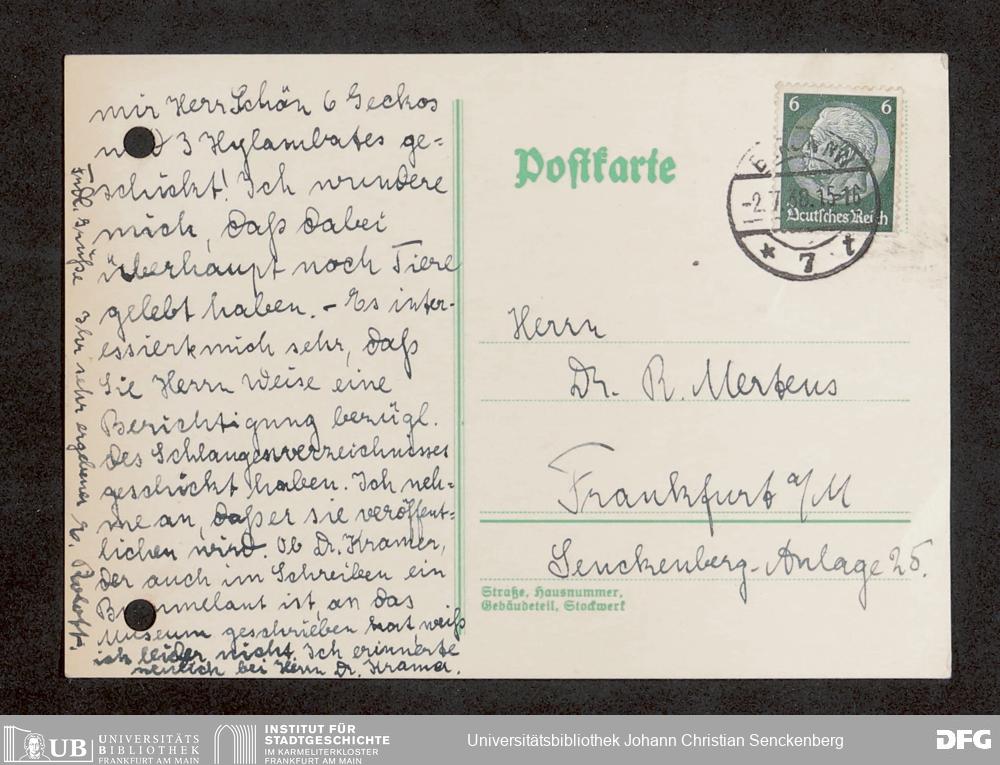 mir Herr Schön 6 Geckos
und 3 Hylambates ge-
schickt! Ich wundere
mich, daß dabei
überhaupt noch Tiere
gelebt haben. - Es inter-
essiert mich sehr, daß
Sie Herrn Weise eine
Berichtigung bezügl.
des Schlangenverzeichnisses
geschickt haben. Ich neh-
me an, daß er sie veröffent-
lichen wird. Ob Dr. Kramer,
der auch im Schreiben ein
Bummelant ist, an das
Museum geschrieben hat, weiß
ich leider nicht. Ich erinnerte
neulich bei Herrn Dr. Kramer.
Frdl. Grüße Ihr sehr ergebener E. Roloff.
Postkarte
6 6
Deutsches Reich
-2.7.38.15-16
* 7 t
Herrn
Dr. R. Mertens
Frankfurt a/M
Senckenberg-Anlage 25.
Straße, Hausnummer,
Gebäudeteil, Stockwerk
UB UNIVERSITÄTS
BIBLIOTHEK
FRANKFURT AM MAIN
INSTITUT FÜR
STADTGESCHICHTE
IM KARMELITERKLOSTER
FRANKFURT AM MAIN
Universitätsbibliothek Johann Christian Senckenberg
DFG